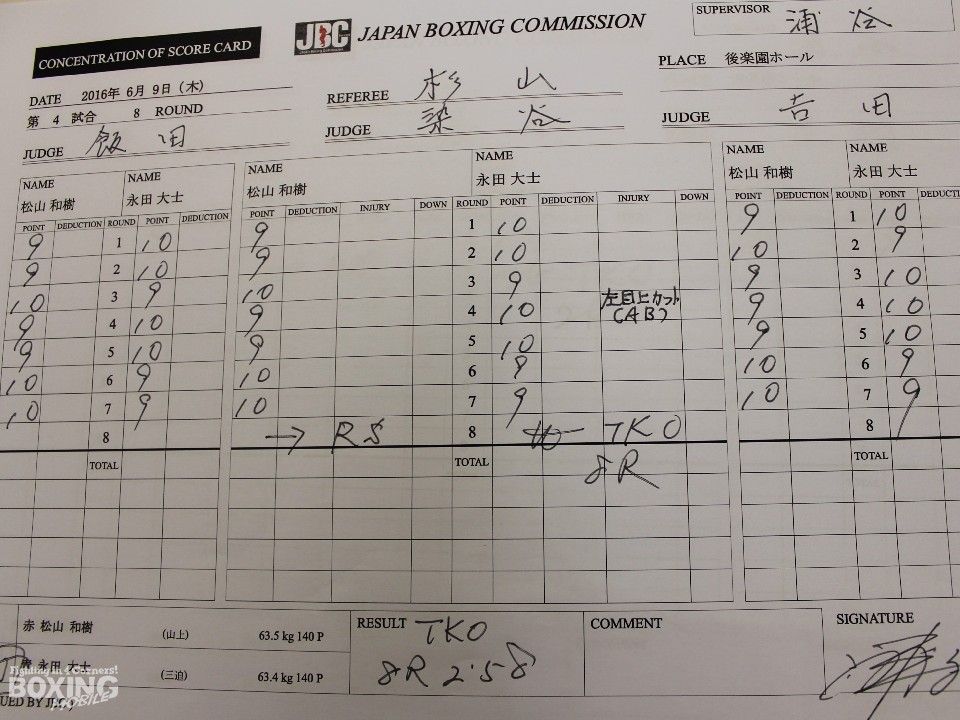 CONCENTRATION OF SCORE CARD
JBC JAPAN BOXING COMMISSION
SUPERVISOR 浦谷
DATE 2016年 6月 9日（木）
REFEREE 杉山
PLACE 後楽園ホール
第 4 試合 8 ROUND
JUDGE 飯田
JUDGE 染谷
JUDGE 吉田
NAME 松山 和樹 NAME 永田 大士
POINT DEDUCTION ROUND POINT DEDUCTION
9 1 10
9 2 10
10 3 9
9 4 10
9 5 10
10 6 9
10 7 9
8
TOTAL
NAME 松山 和樹 NAME 永田 大士
POINT DEDUCTION INJURY DOWN ROUND POINT DEDUCTION INJURY DOWN
9 1 10
9 2 10
10 3 9
9 4 10 左目上カット (AB)
9 5 10
10 6 9
10 7 9
→ RS 8 TKO
TOTAL 8R
NAME 松山 和樹 NAME 永田 大士
POINT DEDUCTION ROUND POINT
9 1 10
10 2 9
9 3 10
9 4 10
9 5 10
10 6 9
10 7 9
8
TOTAL
赤 松山 和樹 (山上) 63.5 kg 140 P
永田 大士 (三迫) 63.4 kg 140 P
RESULT TKO
8R 2'58
COMMENT
SIGNATURE
Fighting in 4 Corners!
BOXING
MOBILE